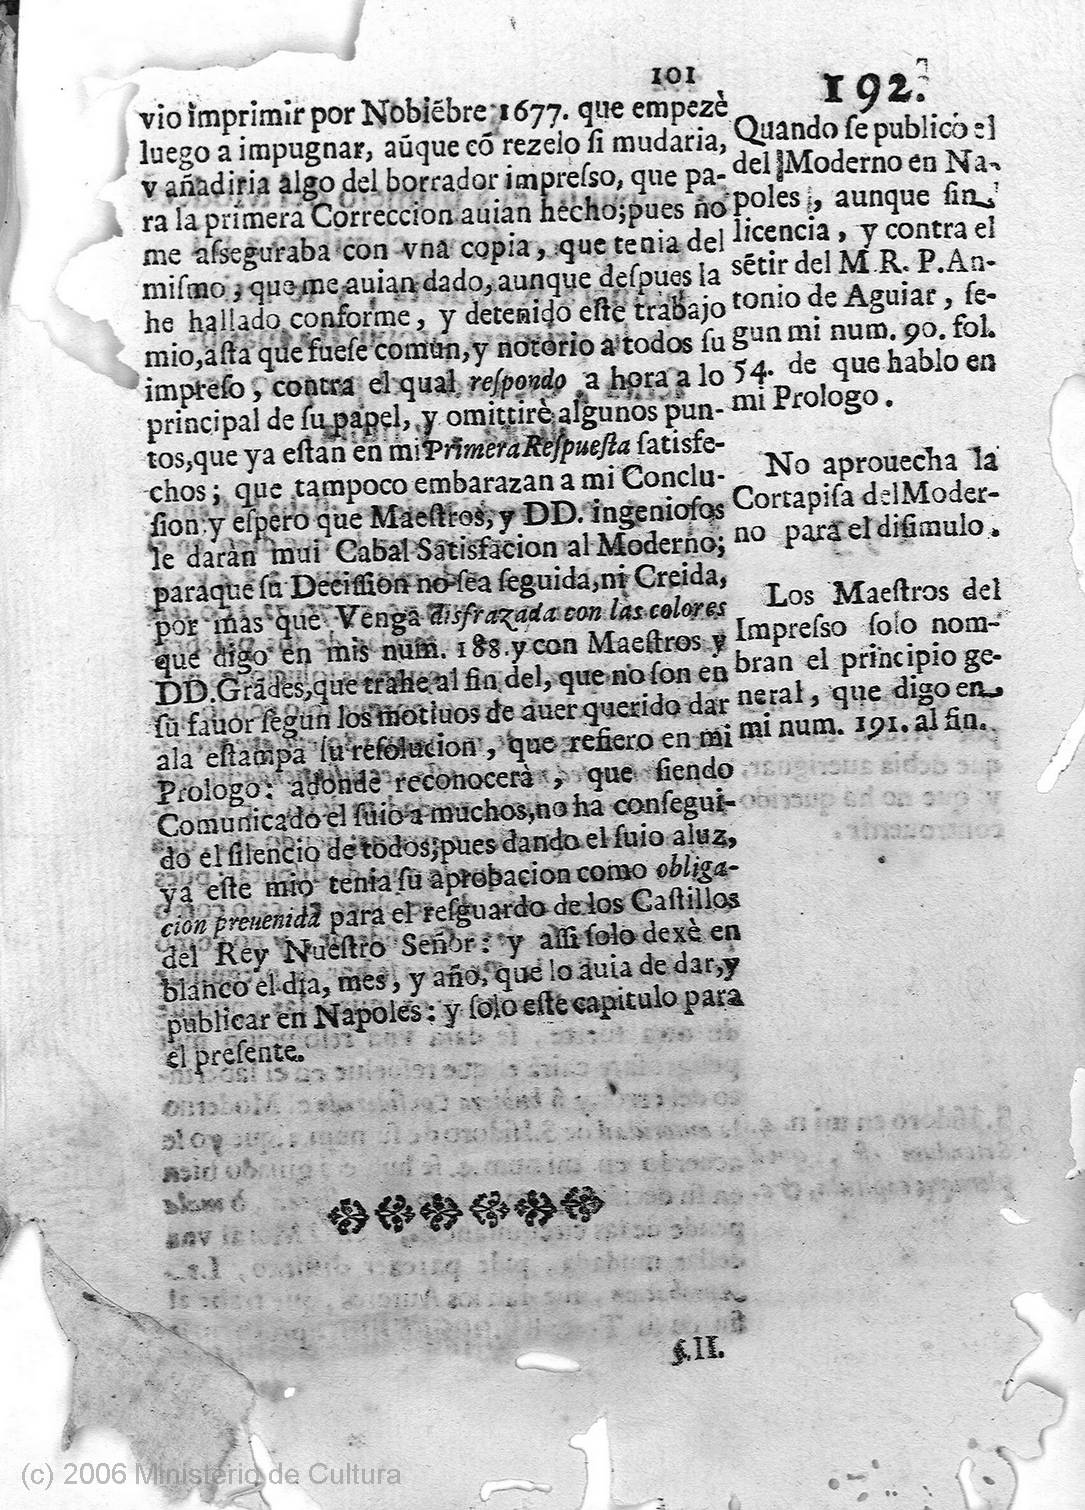 101
192.
vio imprimir por Nobiẽbre 1677. que empezè
luego a impugnar, aũque cõ rezelo ſi mudaria,
v añadiria algo del borrador impreſso, que pa-
ra la primera Correccion auian hecho; pues no
me aſseguraba con vna copia, que tenia del
miſmo; que me auian dado, aunque deſpues la
he hallado conforme, y detenido eſte trabajo
mio, aſta que fueſe comun, y notorio a todos ſu
impreſo, contra el qual reſpondo a hora a lo
principal de ſu papel, y omittirè algunos pun-
tos, que ya eſtan en mi Primera Reſpueſta ſatisfe-
chos; que tampoco embarazan a mi Conclu-
ſion y eſpero que Maeſtros, y DD. ingenioſos
le daràn mui Cabal Satisfacion al Moderno;
paraque ſu Deciſſion no ſea ſeguida, ni Creida,
por mas que Venga disfrazada con las colores
que digo en mis num. 188. y con Maeſtros y
DD. Grãdes, que trahe al fin del, que no ſon en
ſu fauor ſegun los motiuos de auer querido dar
ala eſtampa ſu reſolucion, que refiero en mi
Prologo: adonde reconocerà, que ſiendo
Comunicado el ſuio a muchos, no ha conſegui-
do el ſilencio de todos; pues dando el ſuio aluz,
ya eſte mio tenia ſu aprobacion como obliga-
cion preuenida para el reſguardo de los Caſtillos
del Rey Nueſtro Señor: y aſſi ſolo dexè en
blanco el dia, mes, y año, que lo auia de dar, y
publicar en Napoles: y ſolo eſte capitulo para
el preſente.
Quando ſe publicò el
del Moderno en Na-
poles, aunque ſin
licencia, y contra el
sẽtir del M. R. P. An-
tonio de Aguiar, ſe-
gun mi num. 90. fol.
54. de que hablo en
mi Prologo.
No aprouecha la
Cortapiſa del Moder-
no para el diſimulo.
Los Maeſtros del
Impreſso ſolo nom-
bran el principio ge-
neral, que digo en
mi num. 191. al fin.
§. II.
(c) 2006 Ministerio de Cultura